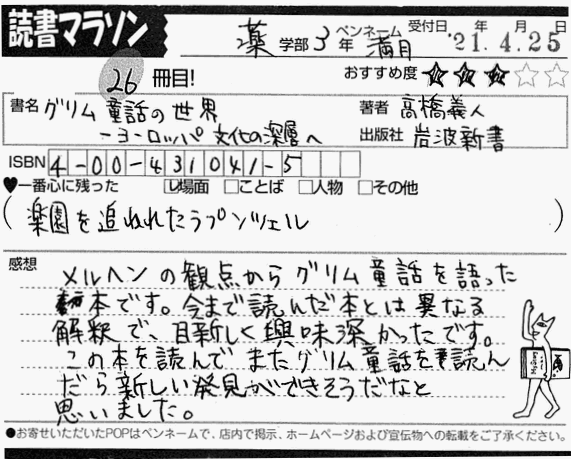 読書マラソン
薬 学部 3 年 ペンネーム 満月 受付日 '21. 年 4. 月 25 日
26 冊目! おすすめ度 ★★★☆☆
書名 グリム童話の世界
-ヨーロッパ文化の深層へ
著者 高橋義人
出版社 岩波新書
ISBN 4-00-431041-5
♥一番心に残った ☑場面 □ことば □人物 □その他
(楽園を追われたラプンツェル)
感想 メルヘンの観点からグリム童話を語った
本です。今まで読んだ本とは異なる
解釈で、目新しく興味深かったです。
この本を読んでまたグリム童話を読ん
だら新しい発見ができそうだなと
思いました。
●お寄せいただいたPOPはペンネームで、店内で掲示、ホームページおよび宣伝物への転載をご了承ください。